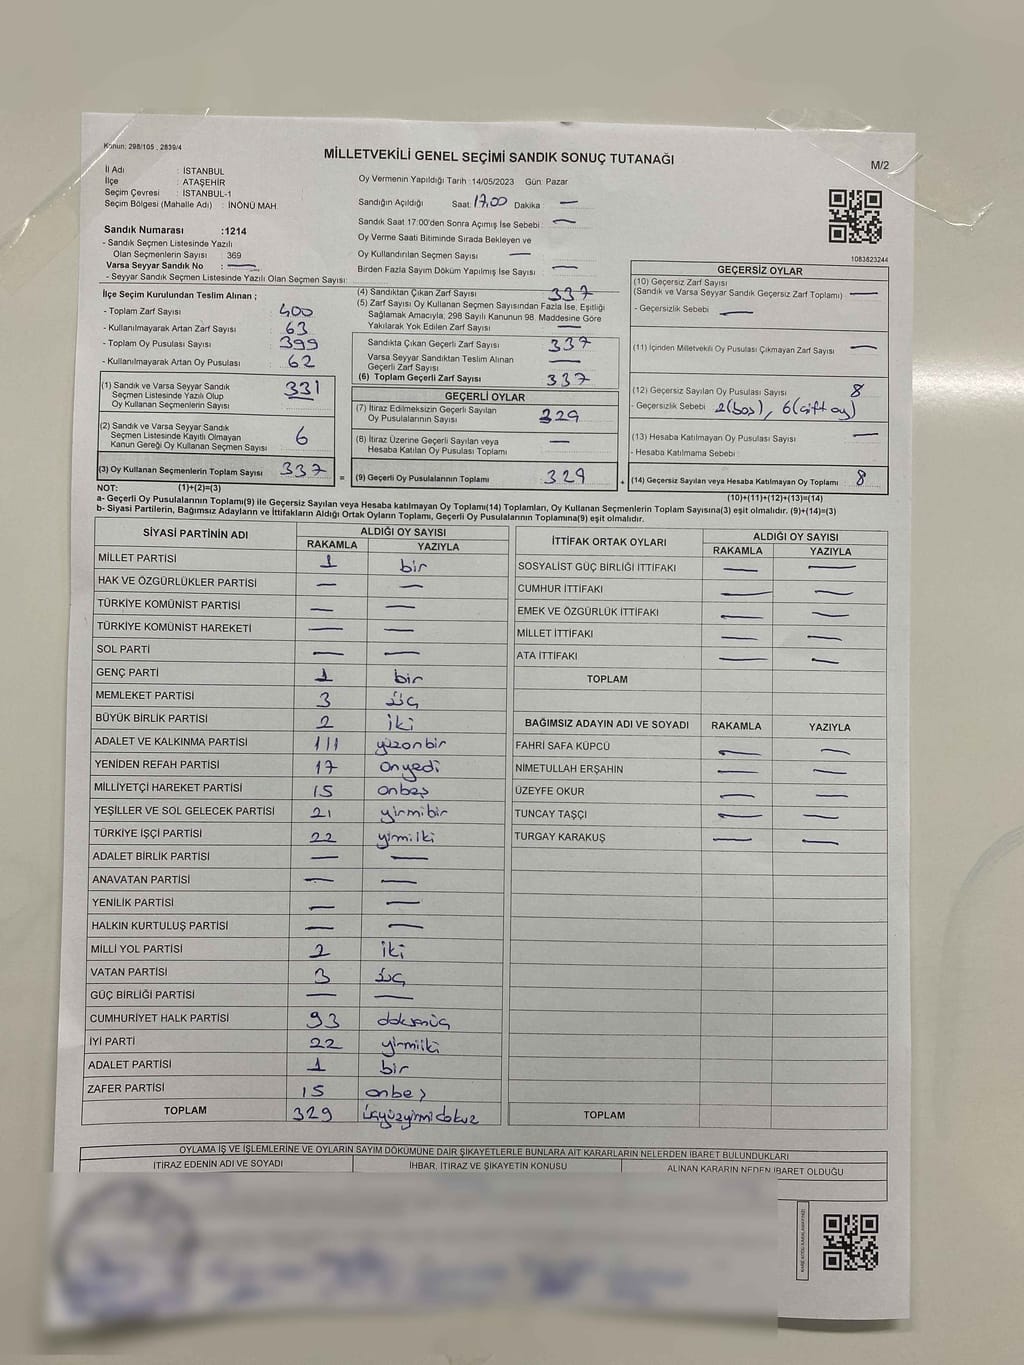 Kanun: 298/105 , 2839/4
MİLLETVEKİLİ GENEL SEÇİMİ SANDIK SONUÇ TUTANAĞI
M/2
İl Adı : İSTANBUL
İlçe : ATAŞEHİR
Seçim Çevresi : İSTANBUL-1
Seçim Bölgesi (Mahalle Adı) : İNÖNÜ MAH.
Sandık Numarası :1214
- Sandık Seçmen Listesinde Yazılı
Olan Seçmenlerin Sayısı : 369
Varsa Seyyar Sandık No : —
- Seyyar Sandık Seçmen Listesinde Yazılı Olan Seçmen Sayısı:
Oy Vermenin Yapıldığı Tarih :14/05/2023 Gün: Pazar
Sandığın Açıldığı Saat: 17.00 Dakika : —
Sandık Saat 17:00'den Sonra Açımış İse Sebebi : —
Oy Verme Saati Bitiminde Sırada Bekleyen ve
Oy Kullandırılan Seçmen Sayısı —
Birden Fazla Sayım Döküm Yapılmış İse Sayısı : —
1083823244
İlçe Seçim Kurulundan Teslim Alınan ;
- Toplam Zarf Sayısı : 400
- Kullanılmayarak Artan Zarf Sayısı : 63
- Toplam Oy Pusulası Sayısı : 399
- Kullanılmayarak Artan Oy Pusulası : 62
(1) Sandık ve Varsa Seyyar Sandık
Seçmen Listesinde Yazılı Olup
Oy Kullanan Seçmenlerin Sayısı 331
(2) Sandık ve Varsa Seyyar Sandık
Seçmen Listesinde Kayıtlı Olmayan
Kanun Gereği Oy Kullanan Seçmen Sayısı 6
(3) Oy Kullanan Seçmenlerin Toplam Sayısı 337
(4) Sandıktan Çıkan Zarf Sayısı 337
(5) Zarf Sayısı Oy Kullanan Seçmen Sayısından Fazla İse, Eşitliği
Sağlamak Amacıyla, 298 Sayılı Kanunun 98. Maddesine Göre
Yakılarak Yok Edilen Zarf Sayısı —
Sandıkta Çıkan Geçerli Zarf Sayısı 337
Varsa Seyyar Sandıktan Teslim Alınan
Geçerli Zarf Sayısı —
(6) Toplam Geçerli Zarf Sayısı 337
GEÇERLİ OYLAR
(7) İtiraz Edilmeksizin Geçerli Sayılan
Oy Pusulalarının Sayısı 329
(8) İtiraz Üzerine Geçerli Sayılan veya
Hesaba Katılan Oy Pusulası Toplamı —
= (9) Geçerli Oy Pusulalarının Toplamı 329
GEÇERSİZ OYLAR
(10) Geçersiz Zarf Sayısı
(Sandık ve Varsa Seyyar Sandık Geçersiz Zarf Toplamı) —
- Geçersizlik Sebebi : —
(11) İçinden Milletvekili Oy Pusulası Çıkmayan Zarf Sayısı —
(12) Geçersiz Sayılan Oy Pusulası Sayısı 8
- Geçersizlik Sebebi 2(boş), 6(çift oy)
(13) Hesaba Katılmayan Oy Pusulası Sayısı —
- Hesaba Katılmama Sebebi :
+ (14) Geçersiz Sayılan veya Hesaba Katılmayan Oy Toplamı : 8
NOT: (1)+(2)=(3)
(10)+(11)+(12)+(13)=(14)
a- Geçerli Oy Pusulalarının Toplamı(9) ile Geçersiz Sayılan veya Hesaba katılmayan Oy Toplamı(14) Toplamları, Oy Kullanan Seçmenlerin Toplam Sayısına(3) eşit olmalıdır. (9)+(14)=(3)
b- Siyasi Partilerin, Bağımsız Adayların ve İttifakların Aldığı Ortak Oyların Toplamı, Geçerli Oy Pusulalarının Toplamına(9) eşit olmalıdır.
SİYASİ PARTİNİN ADI ALDIĞI OY SAYISI
RAKAMLA YAZIYLA
MİLLET PARTİSİ 1 bir
HAK VE ÖZGÜRLÜKLER PARTİSİ — —
TÜRKİYE KOMÜNİST PARTİSİ — —
TÜRKİYE KOMÜNİST HAREKETİ — —
SOL PARTİ — —
GENÇ PARTİ 1 bir
MEMLEKET PARTİSİ 3 üç
BÜYÜK BİRLİK PARTİSİ 2 iki
ADALET VE KALKINMA PARTİSİ 111 yüzonbir
YENİDEN REFAH PARTİSİ 17 onyedi
MİLLİYETÇİ HAREKET PARTİSİ 15 onbeş
YEŞİLLER VE SOL GELECEK PARTİSİ 21 yirmibir
TÜRKİYE İŞÇİ PARTİSİ 22 yirmiiki
ADALET BİRLİK PARTİSİ — —
ANAVATAN PARTİSİ — —
YENİLİK PARTİSİ — —
HALKIN KURTULUŞ PARTİSİ — —
MİLLİ YOL PARTİSİ 2 iki
VATAN PARTİSİ 3 üç
GÜÇ BİRLİĞİ PARTİSİ — —
CUMHURİYET HALK PARTİSİ 93 doksanüç
İYİ PARTİ 22 yirmiiki
ADALET PARTİSİ 1 bir
ZAFER PARTİSİ 15 onbeş
TOPLAM 329 üçyüzyirmidokuz
İTTİFAK ORTAK OYLARI ALDIĞI OY SAYISI
RAKAMLA YAZIYLA
SOSYALİST GÜÇ BİRLİĞİ İTTİFAKI — —
CUMHUR İTTİFAKI — —
EMEK VE ÖZGÜRLÜK İTTİFAKI — —
MİLLET İTTİFAKI — —
ATA İTTİFAKI — —
TOPLAM
BAĞIMSIZ ADAYIN ADI VE SOYADI RAKAMLA YAZIYLA
FAHRİ SAFA KÜPCÜ — —
NİMETULLAH ERŞAHİN — —
ÜZEYFE OKUR — —
TUNCAY TAŞÇI — —
TURGAY KARAKUŞ — —
TOPLAM
OYLAMA İŞ VE İŞLEMLERİNE VE OYLARIN SAYIM DÖKÜMÜNE DAİR ŞİKAYETLERLE BUNLARA AİT KARARLARIN NELERDEN İBARET BULUNDUKLARI
İTİRAZ EDENİN ADI VE SOYADI İHBAR, İTİRAZ VE ŞİKAYETİN KONUSU ALINAN KARARIN NEDEN İBARET OLDUĞU